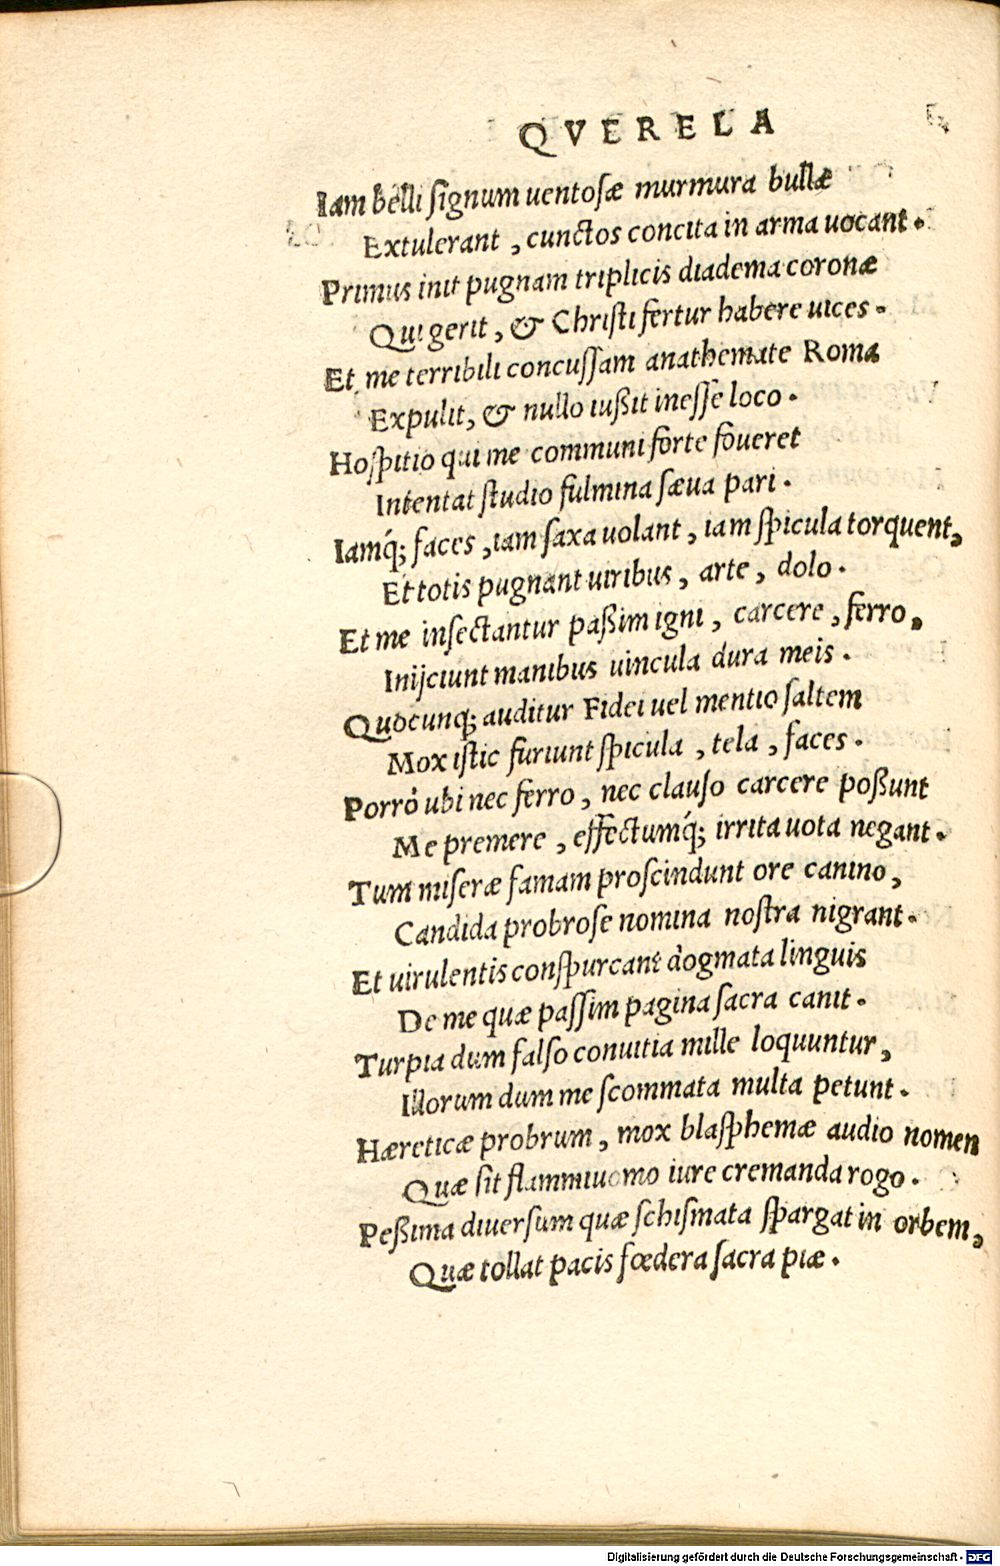 QVERELA
Iam belli signum uentosæ murmura bullæ
Extulerant, cunctos concita in arma uocant.
Primus init pugnam triplicis diadema coronæ
Qui gerit, & Christi fertur habere uices.
Et me terribili concussam anathemate Roma
Expulit, & nullo iußit inesse loco.
Hospitio qui me communi forte foueret
Intentat studio fulmina sæua pari.
Iamq́; faces, iam saxa uolant, iam spicula torquent,
Et totis pugnant uiribus, arte, dolo.
Et me insectantur paßim igni, carcere, ferro,
Inijciunt manibus uincula dura meis.
Quocunq; auditur Fidei uel mentio saltem
Mox istic furiunt spicula, tela, faces.
Porrò ubi nec ferro, nec clauso carcere poßunt
Me premere, effectumq́; irrita uota negant.
Tum miseræ famam proscindunt ore canino,
Candida probrose nomina nostra nigrant.
Et uirulentis conspurcant dogmata linguis
De me quæ passim pagina sacra canit.
Turpia dum falso conuitia mille loquuntur,
Illorum dum me scommata multa petunt.
Hæreticæ probrum, mox blasphemæ audio nomen
Quæ sit flammiuomo iure cremanda rogo.
Peßima diuersum quæ schismata spargat in orbem,
Quæ tollat pacis fœdera sacra piæ.
Digitalisierung gefördert durch die Deutsche Forschungsgemeinschaft - DFG